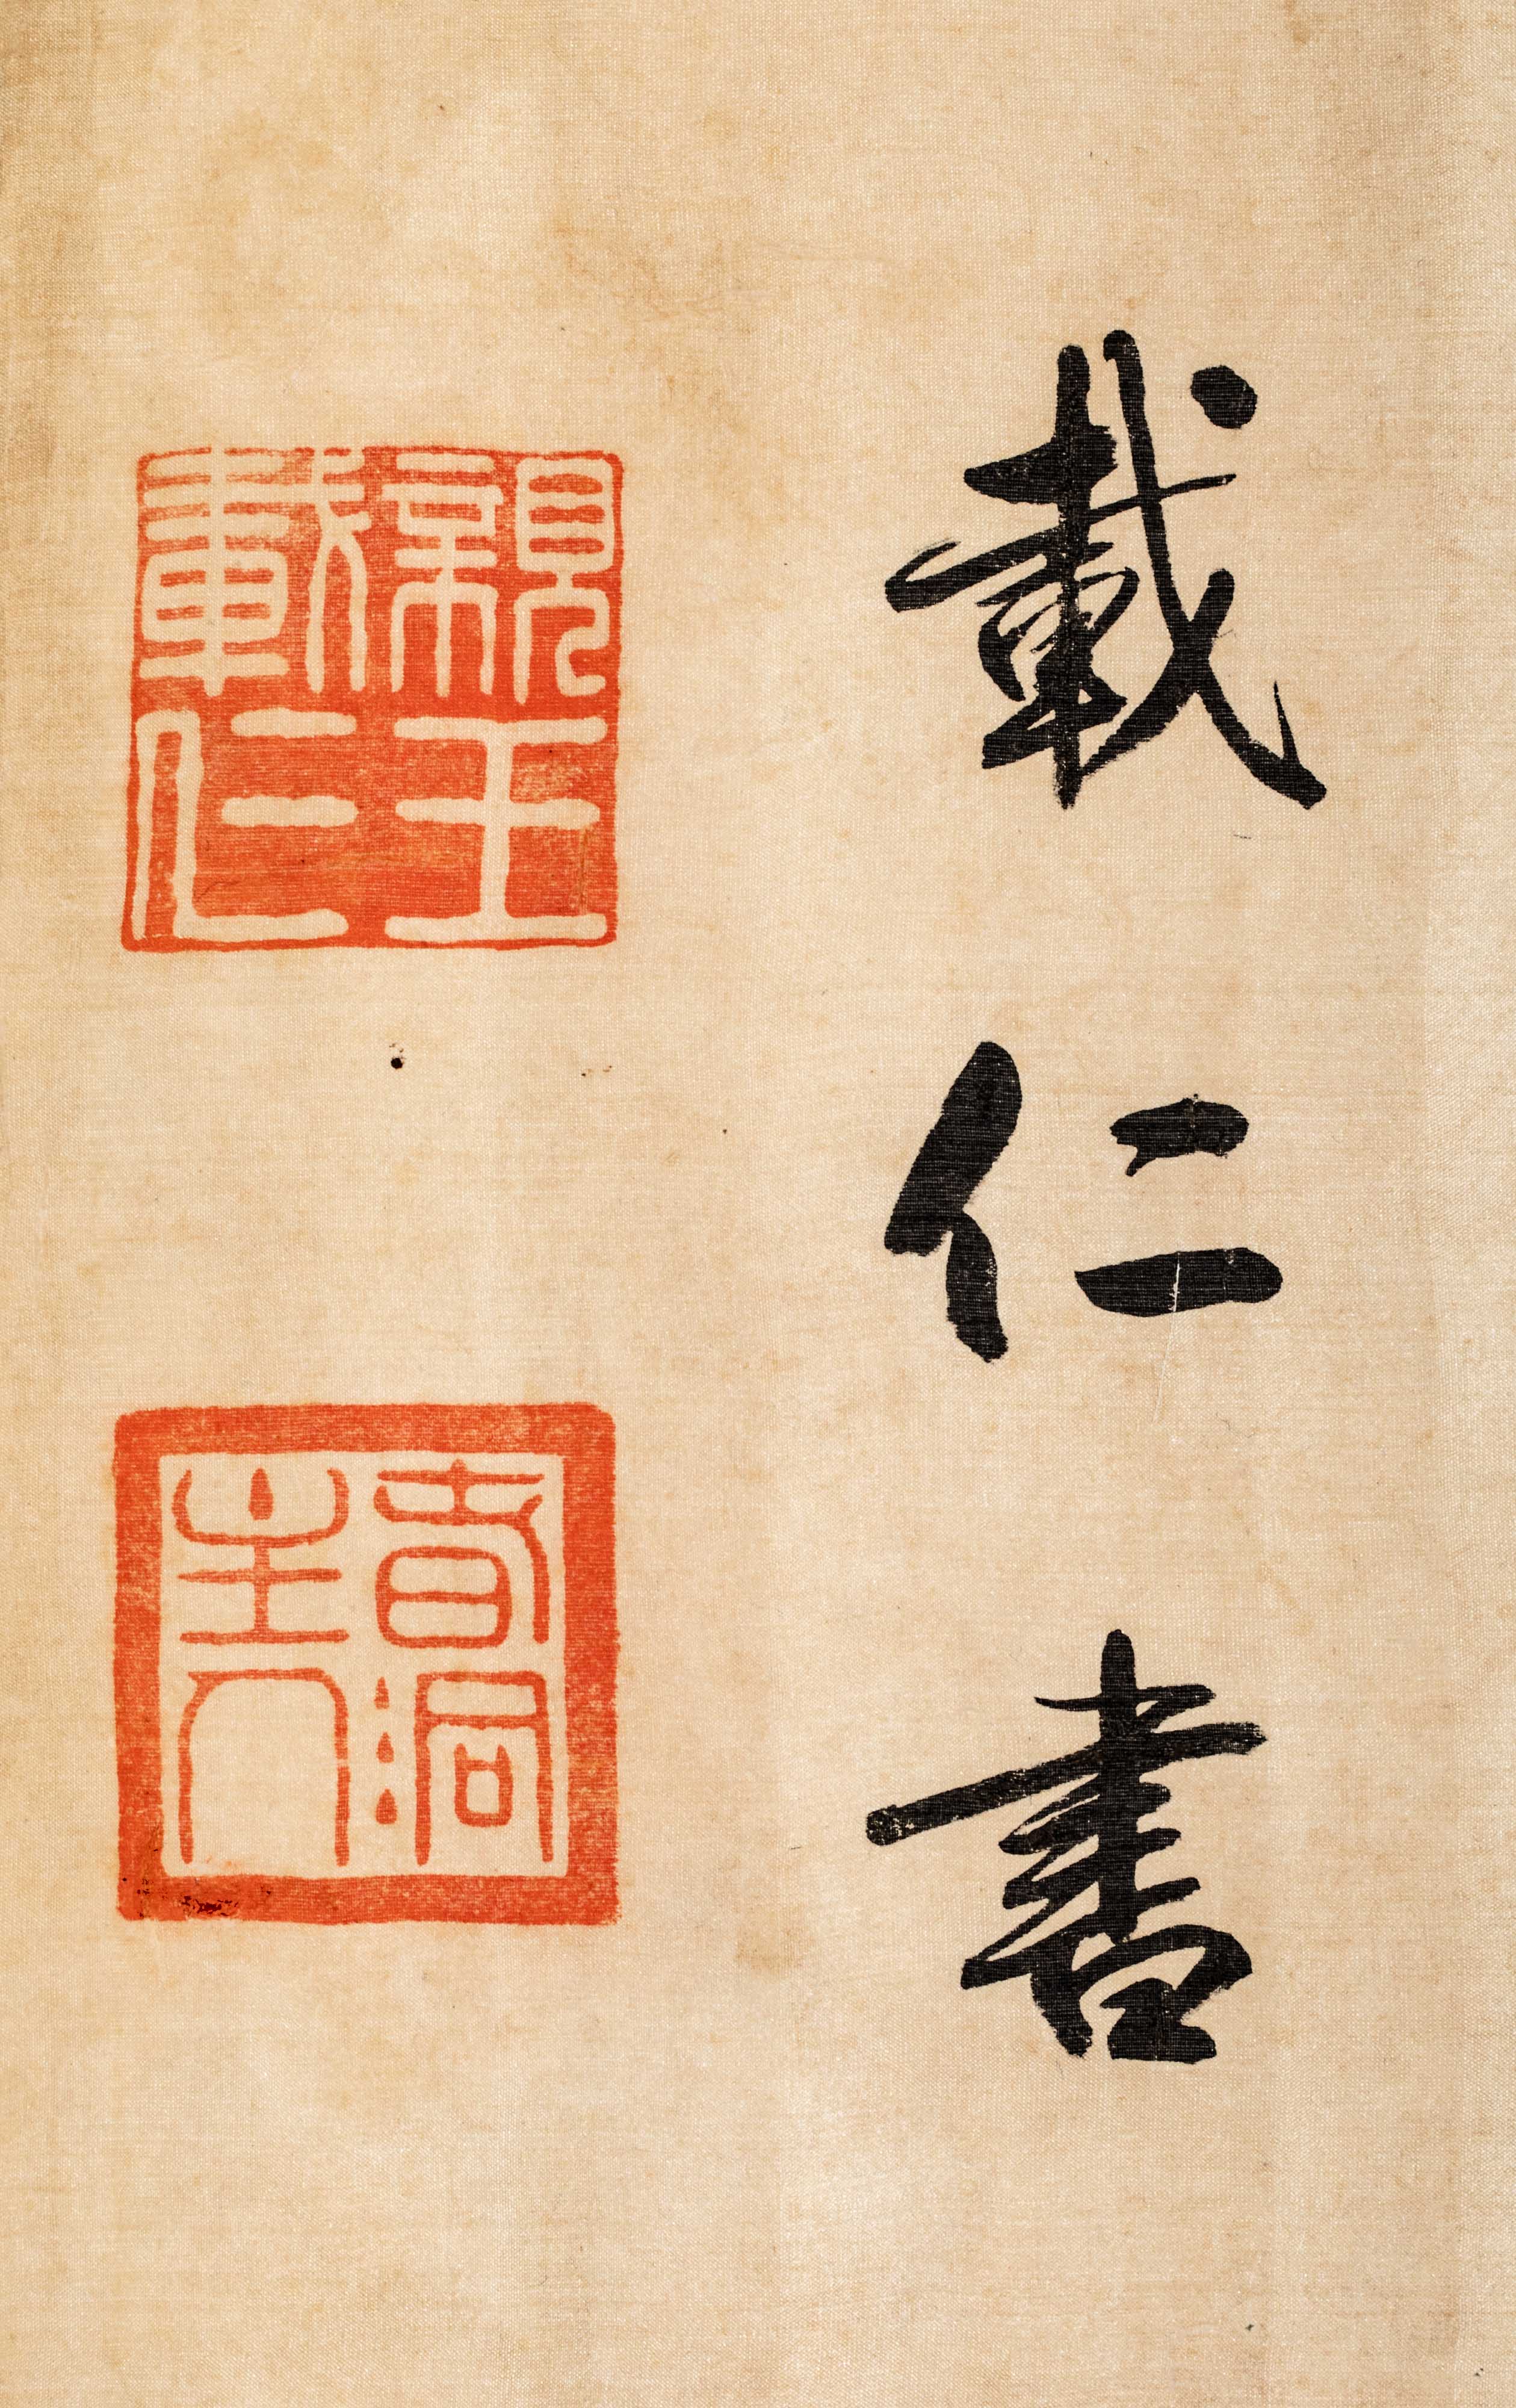 載仁書
親王載仁
春洞主人